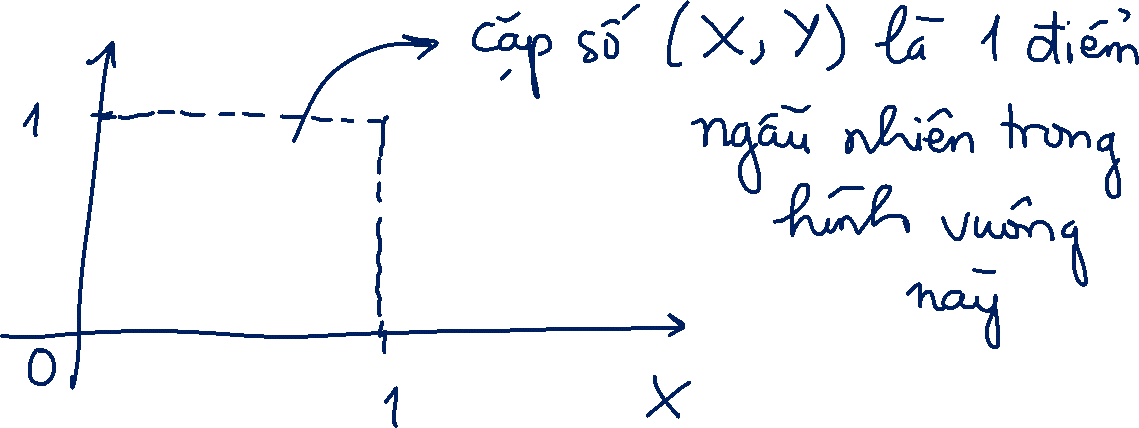 cặp số (X, Y) là 1 điểm
1
ngẫu nhiên trong
hình vuông
này
0
1
X